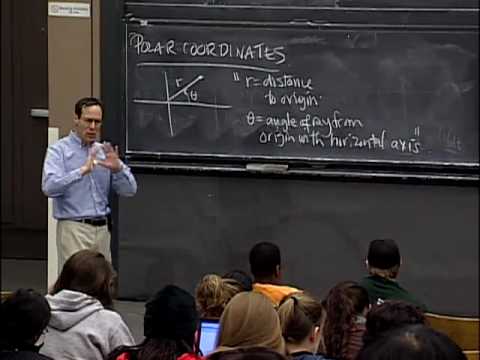 POLAR COORDINATES
r
θ
" r = distance
to origin.
θ = angle of ray from
origin with horizontal axis "